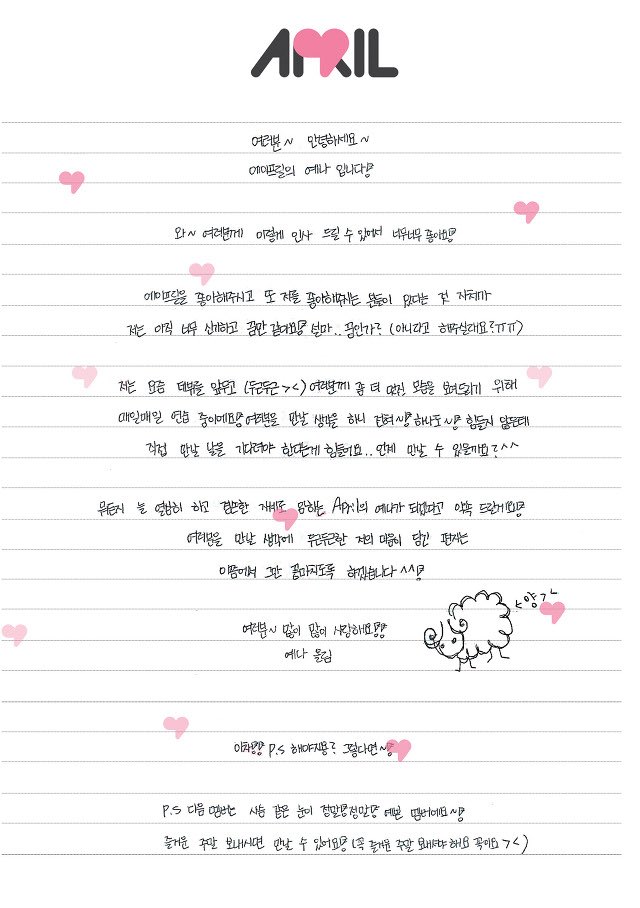 APRIL
여러분~ 안녕하세요~
에이프릴의 예나 입니다!
와~ 여러분께 이렇게 인사 드릴 수 있어서 너무너무 좋아요!
에이프릴을 좋아해주시고 또 저를 좋아해주시는 분들이 있다는 것 자체가
저는 아직 너무 신기하고 꿈만 같아요! 설마.. 꿈인가? (아니라고 해주실래요?ㅠㅠ)
저는 요즘 데뷔를 앞두고 (두근두근 ><) 여러분께 좀 더 멋진 모습을 보여드리기 위해
매일매일 연습 중이에요! 여러분을 만날 생각을 하니 전혀~! 하나도~! 힘들지 않은데
직접 만날 날을 기다려야 한다는게 힘들어요.. 언제 만날 수 있을까요?^^
뭐든지 늘 열심히 하고 겸손한 자세로 임하는 April의 예나가 되겠다고 약속 드릴게요!
여러분을 만날 생각에 두근두근한 저의 마음이 담긴 편지는
이쯤에서 그만 끝마치도록 하겠습니다^^!
여러분~ 많이 많이 사랑해요!!
예나 올림
<양>
아차!! P.S 해야지용? 그렇다면~!
P.S 다음 멤버는 사슴 같은 눈이 정말!정말! 예쁜 멤버예요~!
즐거운 주말 보내시면 만날 수 있어요! (꼭 즐거운 주말 보내셔야 해요 꼭이요 ><)